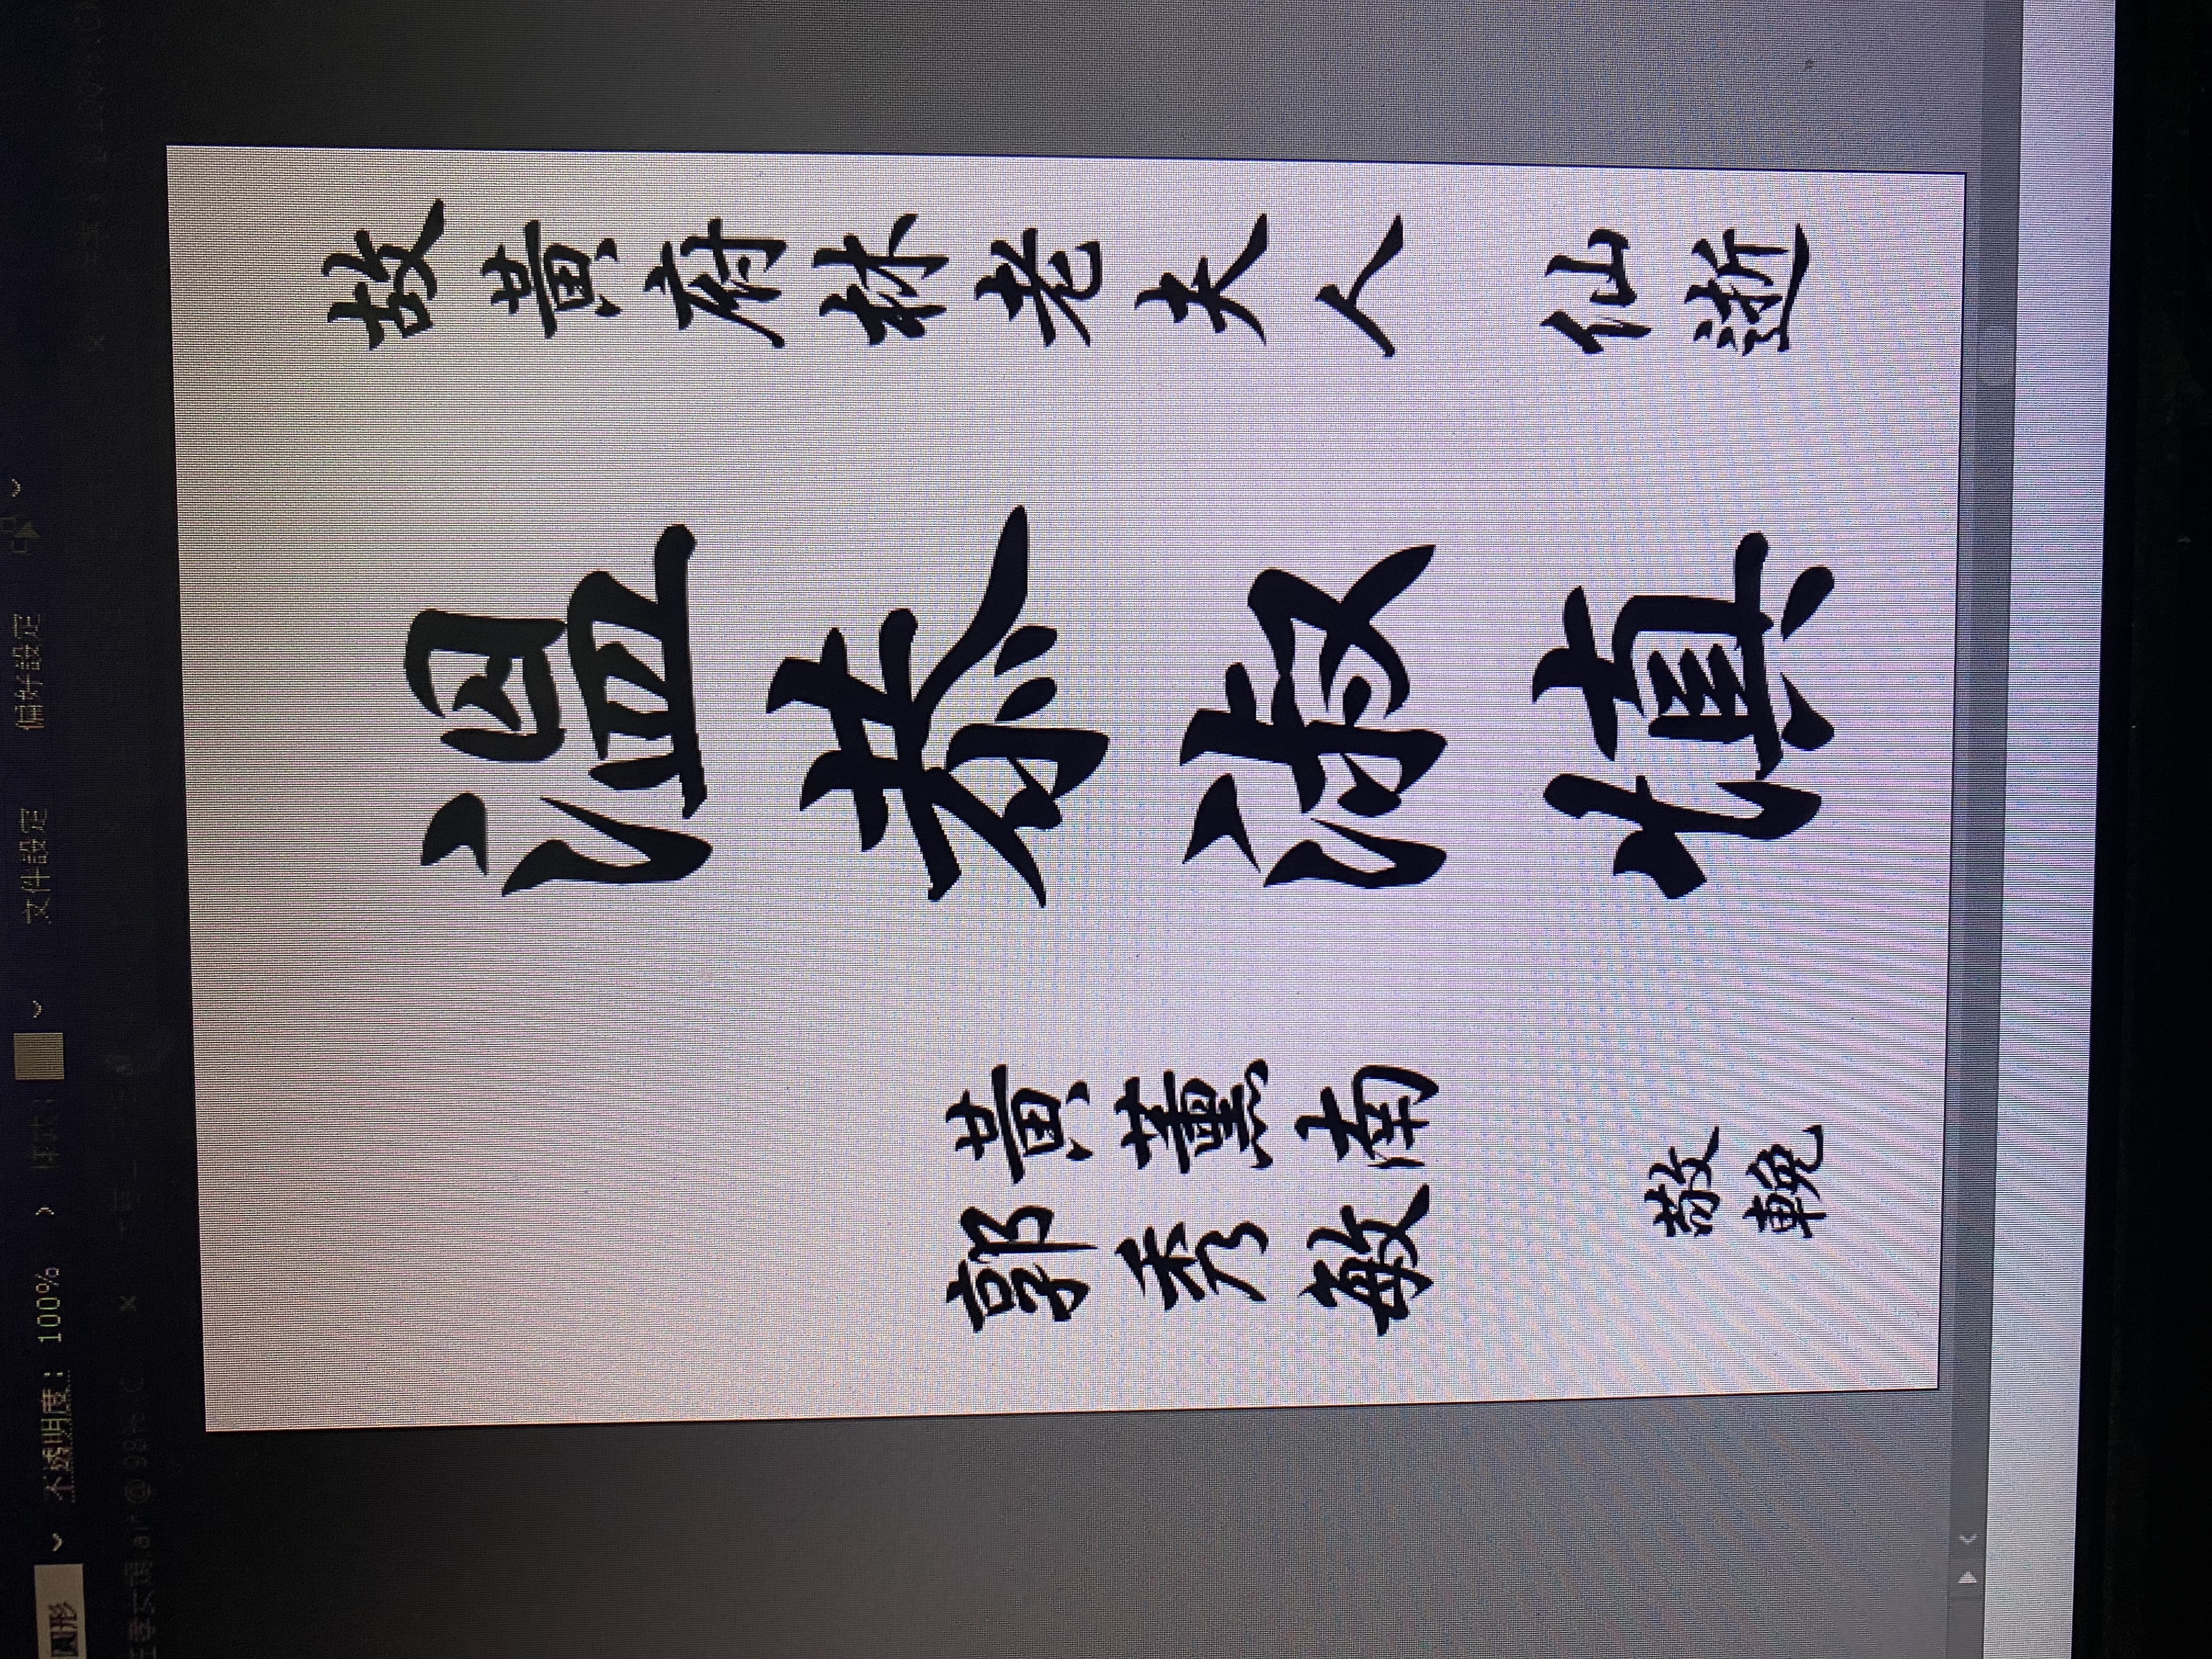 故黃府林老夫人 仙逝
溫恭淑慎
黃蕙南
郭秀敏
敬輓
不透明度： 100%
文件設定
偏好設定
圓形